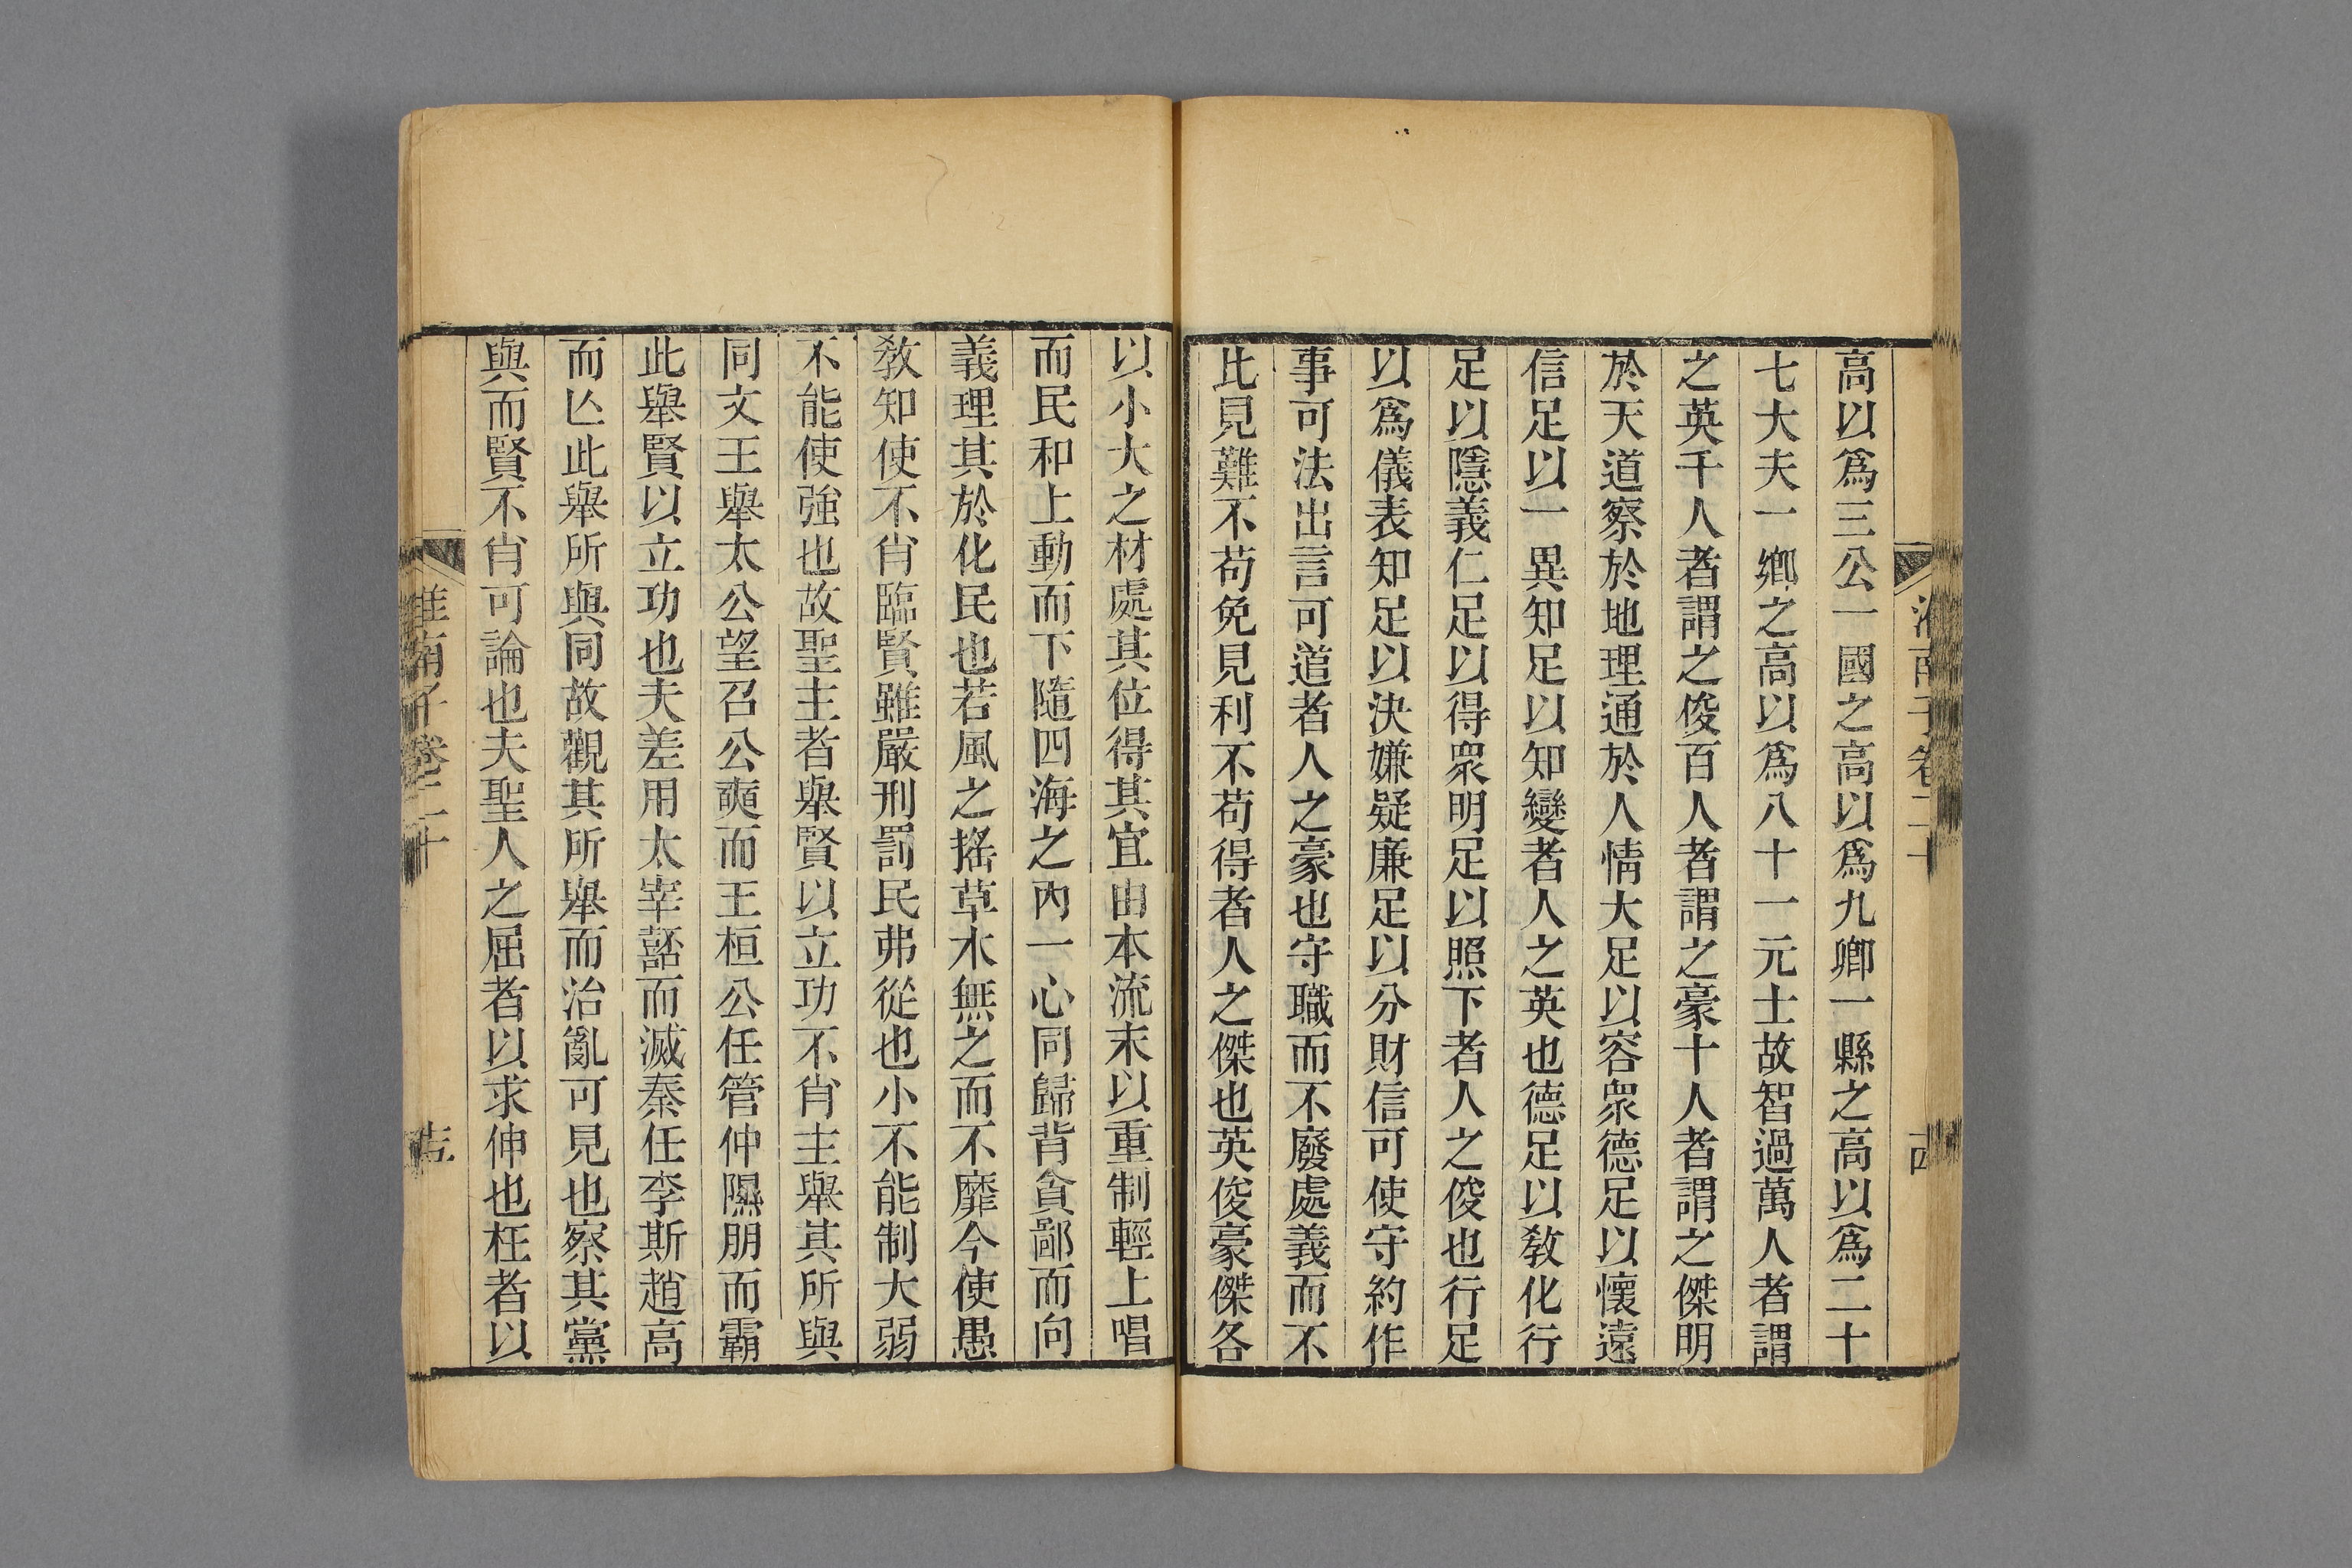 淮南子卷二十
高以爲三公一國之高以爲九卿一縣之高以爲二十
七大夫一鄉之高以爲八十一元士故智過萬人者謂
之英千人者謂之俊百人者謂之豪十人者謂之傑明
於天道察於地理通於人情大足以容衆德足以懷遠
信足以一異知足以知變者人之英也德足以敎化行
足以隱義仁足以得衆明足以照下者人之俊也行足
以爲儀表知足以決嫌疑廉足以分財信可使守約作
事可法出言可道者人之豪也守職而不廢處義而不
比見難不苟免見利不苟得者人之傑也英俊豪傑各
以小大之材處其位得其宜由本流末以重制輕上唱
而民和上動而下隨四海之內一心同歸背貪鄙而向
義理其於化民也若風之搖草木無之而不靡今使愚
敎知使不肖臨賢雖嚴刑罰民弗從也小不能制大弱
不能使強也故聖主者舉賢以立功不肖主舉其所與
同文王舉太公望召公奭而王桓公任管仲隰朋而霸
此舉賢以立功也夫差用太宰嚭而滅秦任李斯趙高
而亾此舉所與同故觀其所舉而治亂可見也察其黨
與而賢不肖可論也夫聖人之屈者以求伸也枉者以
淮南子卷二十